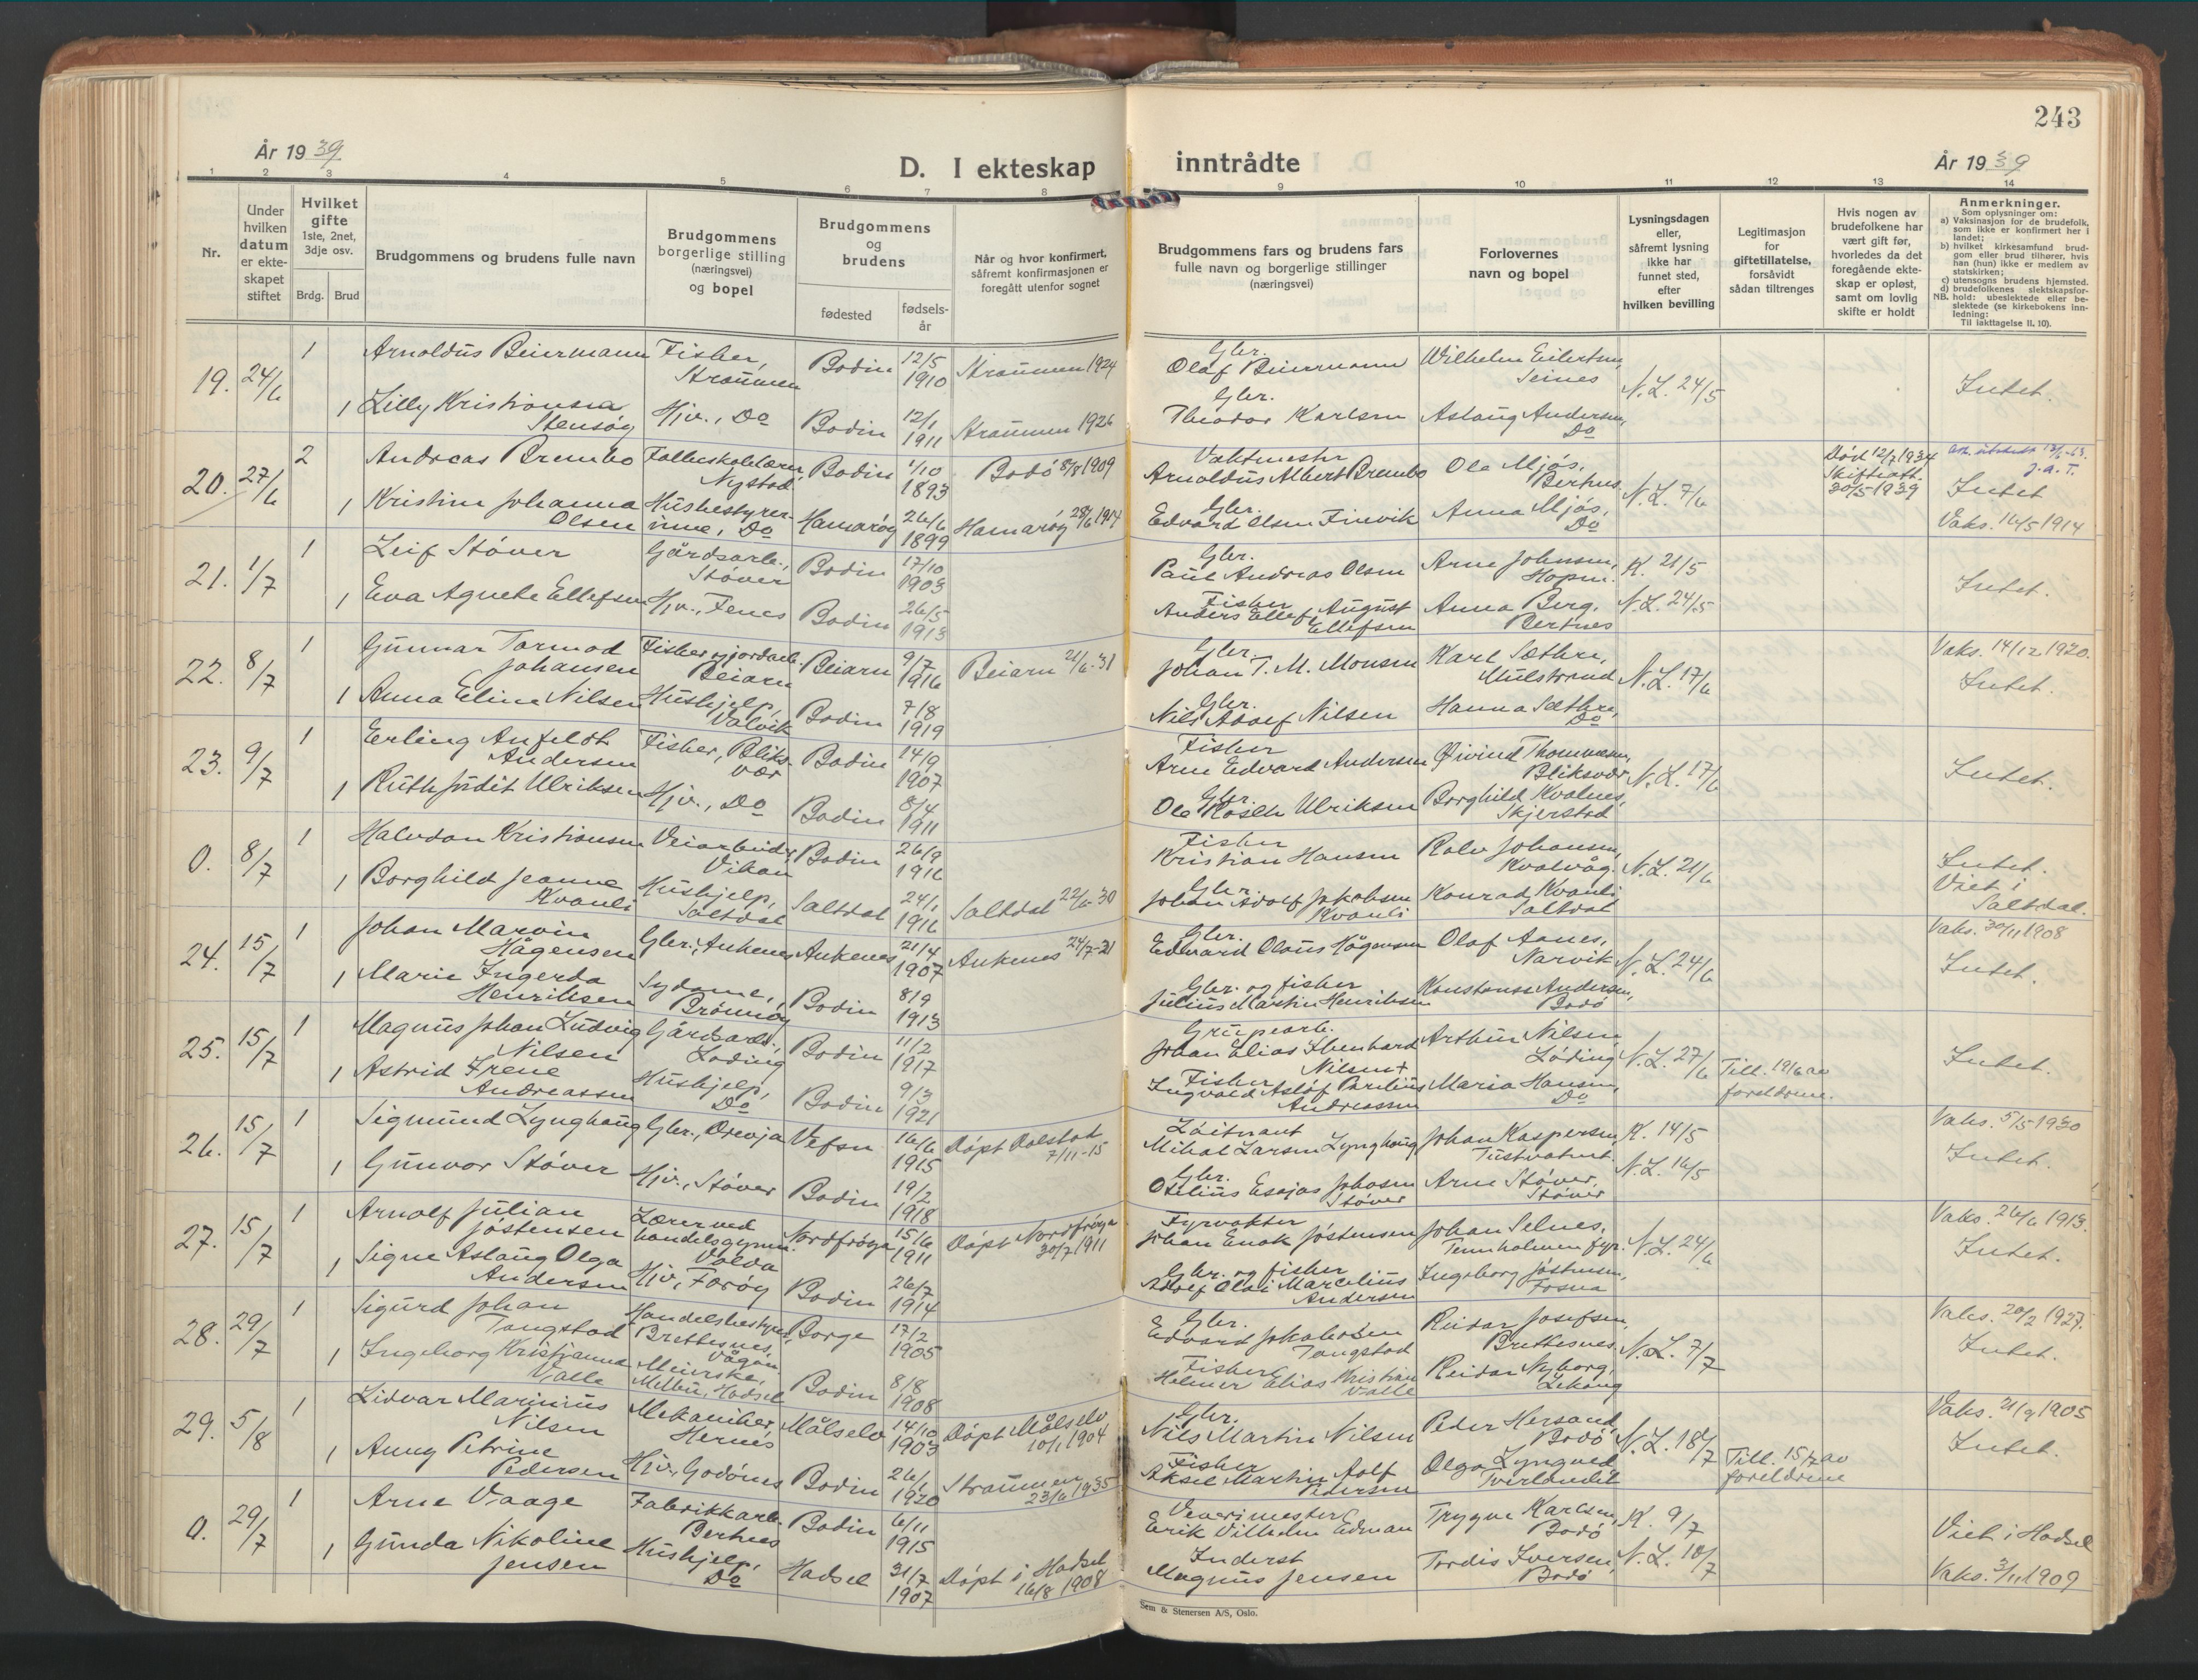 243
År 1939
D. I ekteskap
inntrådte
År 1939
1 2 3 4 5 6 7 8 9 10 11 12 13 14
Nr.
Under hvilken datum er ekteskapet stiftet
Hvilket gifte
1ste, 2net, 3dje osv.
Brdg. Brud
Brudgommens og brudens fulle navn
Brudgommens borgerlige stilling (næringsvei) og bopel
Brudgommens og brudens
fødested
fødsels-år
Når og hvor konfirmert, såfremt konfirmasjonen er foregått utenfor sognet
Brudgommens fars og brudens fars fulle navn og borgerlige stillinger (næringsvei)
Forlovernes navn og bopel
Lysningsdagen eller, såfremt lysning ikke har funnet sted, efter hvilken bevilling
Legitimasjon for giftetillatelse, forsåvidt sådan tiltrenges
Hvis nogen av brudefolkene har vært gift før, hvorledes da det foregående ekteskap er opløst, samt om lovlig skifte er holdt
Anmerkninger.
Som oplysninger om:
a) Vaksinasjon for de brudefolk, som ikke er konfirmert her i landet;
b) hvilket kirkesamfund brudgom eller brud tilhører, hvis han (hun) ikke er medlem av statskirken;
c) utensogns brudens hjemsted.
d) brudefolkenes slektskapsforhold: ubeslektede eller beslektede (se kirkebokens innledning:
NB. Til iakttagelse II, 10).
19. 24/6 1 Arnoldus Beiermann Fisker, Straumen Bodin 12/5 1910 Straumen 1924 Gbr. Olaf Beiermann Wilhelm Eilertsen, Seines N.L. 24/5 Intet.
1 Lilly Kristiansen Stensøy Hjv., Do Bodin 12/1 1911 Straumen 1926 Gbr. Theodor Karlsen Aslaug Andersen, Do
20. 27/6 2 Andreas Brembo Folkeskolelærer, Nystad Bodin 1/10 1893 Bodø 8/8 1909 Vaktmester Arnoldus Albert Brembo Ole Mjøs, Bertnes N.L. 7/6 Død 12/7 1934 Skifteatt. 30/5-1939 J.A.T. Intet
1 Kristine Johanna Olsen Husbestyrerinne, Do Hamarøy 26/6 1899 Hamarøy 28/6 1914 Gbr. Edvard Olsen Finvik Anna Mjøs, Do Vaks. 16/5 1914
21. 1/7 1 Leif Støver Gårdsarb., Støver Bodin 17/10 1903 Gbr. Paul Andreas Olsen Arne Johnsen, Hopen. K. 21/5 Intet.
1 Eva Agnete Ellefsen Hjv., Fenes Bodin 26/5 1913 Fisker Anders Ellef August Ellefsen Anna Berg, Bertnes N.L. 24/5
22. 8/7 1 Gunnar Tormod Johansen Fisker og jordarb. Beiarn Beiarn 9/7 1916 Beiarn 21/6-31 Gbr. Johan T. M. Monsen Karl Sæthre, Mulstrand N.L. 17/6 Vaks. 14/12 1920. Intet.
1 Anna Eline Nilsen Hushjelp, Valvik Bodin 7/8 1919 Gbr. Nils Adolf Nilsen Hanna Sæthre, Do
23. 9/7 1 Erling Anfeldt Andersen Fisker, Bliksvær Bodin 14/9 1907 Fisker Arne Edvard Andersen Øivind Thommesen, Bliksvær N.L. 17/6 Intet.
1 Ruth Judit Ulriksen Hjv., Do Bodin 8/4 1911 Gbr. Ole Ulriksen Borghild Kvalnes, Skjerstad
0. 8/7 1 Halvdan Kristiansen Veiarbeider, Vikan Bodin 26/9 1916 Fisker Kristian Hansen Rolv Johansen, Kvalvåg. N.L. 21/6 Intet. Viet i Saltdal.
1 Borghild Jeanne Kvanli Hushjelp, Saltdal Saltdal 24/1 1916 Saltdal 22/6-30 Gbr. Johan Adolf Jakobsen Kvanli Konrad Kvanli Saltdal
24. 15/7 1 Johan Marvin Hågensen Gbr., Ankenes Ankenes 21/4 1907 Ankenes 24/7-21 Gbr. Edvard Olaus Hågensen Olaf Aanes, Narvik N.L. 24/6 Vaks. 30/11 1908 Intet.
1 Marie Ingerda Henriksen Sydame, Brønnøy Bodin 8/9 1913 Gbr. og fisker Julius Martin Henriksen Konstanse Andersen, Bodø
25. 15/7 1 Magnus Johan Ludvig Nilsen Gårdsarb., Løding Bodin 11/2 1917 Grupearb. Johan Elias Ebenhard Nilsen + Arthur Nilsen Løding N.L. 27/6 Till. 19/6 av foreldrene. Intet.
1 Astrid Irene Andreassen Hushjelp, Do Bodin 9/3 1921 Fisker Ingvald Andreassen Maria Hansen, Do
26. 15/7 1 Sigmund Lynghaug Gbr., Drevja Vefsn 16/6 1915 Døpt Dolstad 7/11-15 Løitnant Mikal Larsen Lynghaug Johan Kaspersen, Tustvatnet. K. 14/5 Vaks. 5/5-1930 Intet.
1 Gunvor Støver Hjv., Støver Bodin 19/2 1918 Gbr. Otelius Esajas Johnsen Støver Arne Støver, Støver N.L. 16/5
27. 15/7 1 Arnolf Julian Jøstensen Lærer ved handelsgymn. Volda Nordfrøya 15/6 1911 Døpt Nordfrøya 30/7 1911 Fyrvokter Johan Enok Jøstensen Johan Selnes, Tennholmen fyr. N.L. 24/6 Vaks. 26/6 1913. Intet.
1 Signe Aslaug Olga Andersen Hjv., Forøy Bodin 26/7 1914 Gbr. og fisker Adolf Olai Marcelius Andersen Ingeborg Jøstensen, Fosna
28. 29/7 1 Sigurd Johan Tangstad Handelsbestyrer, Brettesnes, Vågan Borge 17/2 1905 Gbr. Edvard Jakobsen Tangstad Reidar Josefsen, Brettesnes. N.L. 7/7 Vaks. 20/2 1927. Intet.
1 Ingeborg Kristianna Valle Meierske, Melbu, Hadsel Bodin 8/8 1908 Fisker Helmer Elias Kristian Valle Reidar Nyborg, Løkang
29. 5/8 1 Lidvar Marinius Nilsen Mekaniker, Hernes Målselv 14/10 1903 Døpt Målselv 10/1 1904 Gbr. Nils Martin Nilsen Peder Hersand, Bodø N.L. 18/7 Vaks. 21/9 1905 Intet.
1 Anny Petrine Pedersen Hjv. Godønes Bodin 26/1 1920 Straumen 23/6 1935 Fisker Aksel Martin Adolf Pedersen Olga Lyngved Tverlandet Till. 15/7 av foreldrene
0. 29/7 1 Arne Vaage Fabrikkarb. Bertnes Bodin 6/11 1915 Vevermester Erik Vilhelm Edman Trygve Karlsen, Bodø K. 9/7 Viet i Hadsel
1 Gunda Nikoline Jensen Hushjelp, Do Hadsel 31/7 1907 Døpt i Hadsel 16/8 1908 Inderst Magnus Jensen Tordis Iversen, Bodø N.L. 10/7 Vaks. 3/11 1909
Sem & Stenersen A/S, Oslo.